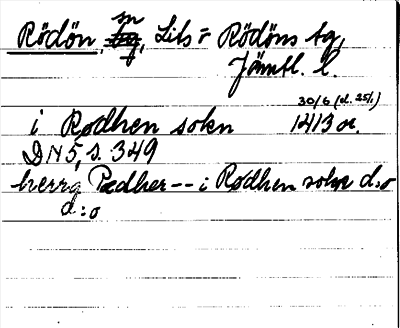 Rödön, sn, Lits = Rödöns tg,
Jämtl. l.
30/6 (d. 25/1)
i Rødhen sokn 1413 or.
DN 5, s. 349
herra Pædher -- i Rødhen sokn d:o
d:o